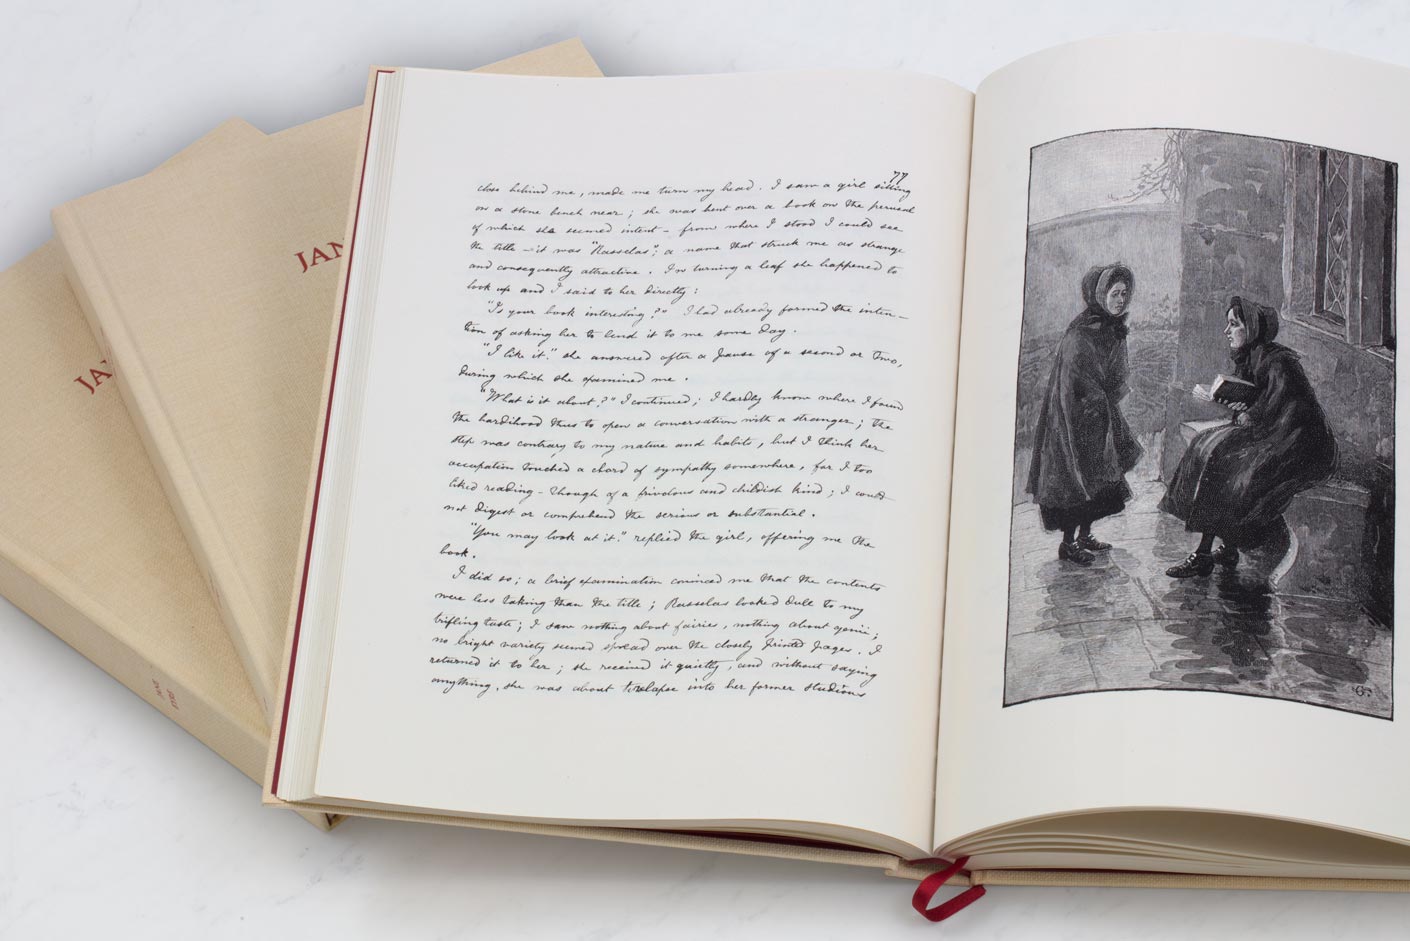 JAN
JA
JANE
EYRE
77
close behind me, made me turn my head. I saw a girl sitting
on a stone bench near; she was bent over a book on the perusal
of which she seemed intent - from where I stood I could see
the title - it was "Rasselas"; a name that struck me as strange
and consequently attractive. In turning a leaf she happened to
look up and I said to her directly:
"Is your book interesting?" I had already formed the inten-
tion of asking her to lend it to me some day.
"I like it." she answered after a pause of a second or two,
during which she examined me.
"What is it about?" I continued; I hardly know where I found
the hardihood thus to open a conversation with a stranger; the
step was contrary to my nature and habits, but I think her
occupation touched a chord of sympathy somewhere, for I too
liked reading - though of a frivolous and childish kind; I could
not digest or comprehend the serious or substantial.
"You may look at it." replied the girl, offering me the
book.
I did so; a brief examination convinced me that the contents
were less taking than the title; Rasselas looked dull to my
trifling taste; I saw nothing about fairies, nothing about genii;
no bright variety seemed spread over the closely printed pages. I
returned it to her; she received it quietly, and without saying
anything, she was about to relapse into her former studious